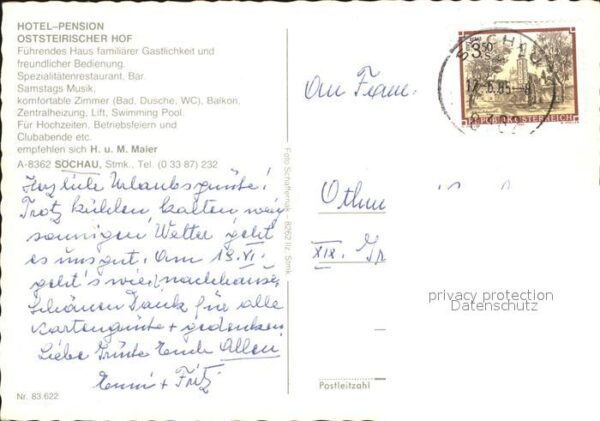 HOTEL-PENSION
OSTSTEIRISCHER HOF
Führendes Haus familiärer Gastlichkeit und
freundlicher Bedienung.
Spezialitätenrestaurant, Bar.
Samstags Musik,
komfortable Zimmer (Bad, Dusche, WC), Balkon,
Zentralheizung, Lift, Swimming Pool.
Für Hochzeiten, Betriebsfeiern und
Clubabende etc.
empfehlen sich H. u. M. Maier
A-8362 SÖCHAU, Stmk., Tel. (0 33 87) 232
Herzliche Urlaubsgrüße!
Trotz kühlen, kalten, wenig
sonnigen Wetter geht
es uns gut. Am 19. VI.
geht's wied. nachhause.
Schönen Dank für alle
Kartengrüße + gedenken
Liebe Grüße Euch Allen
+ Fritz
Nr. 83.622
Foto Schaffernak - 8262 Ilz, Stmk.
3.50
SÖCHAU
17.-6.85-8
REPUBLIK ÖSTERREICH
An Frau
Othm
XIX.
Postleitzahl
privacy protection
Datenschutz